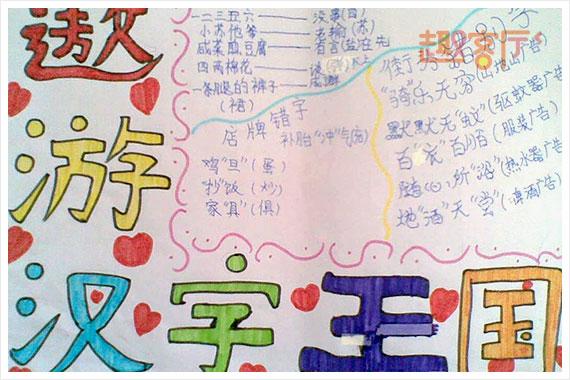 遨
游
汉字王国
一二三五六——没事(四)
小苏他爷——老输(苏)
咸菜煎豆腐——有言(盐)在先
四两棉花——谈
一条腿的裤子
(裙)
店牌错字
补胎"冲"气(充)
鸡"旦"(蛋)
抄"饭"(炒)
家"具"(俱)
街
"骑"乐无穷(山地山广告)
默默无"蚊"(驱蚊器广告)
百"衣"百顺(服装广告)
随心所"浴"(热水器广告)
地"酒"天"堂"(啤酒广告)
趣客厅